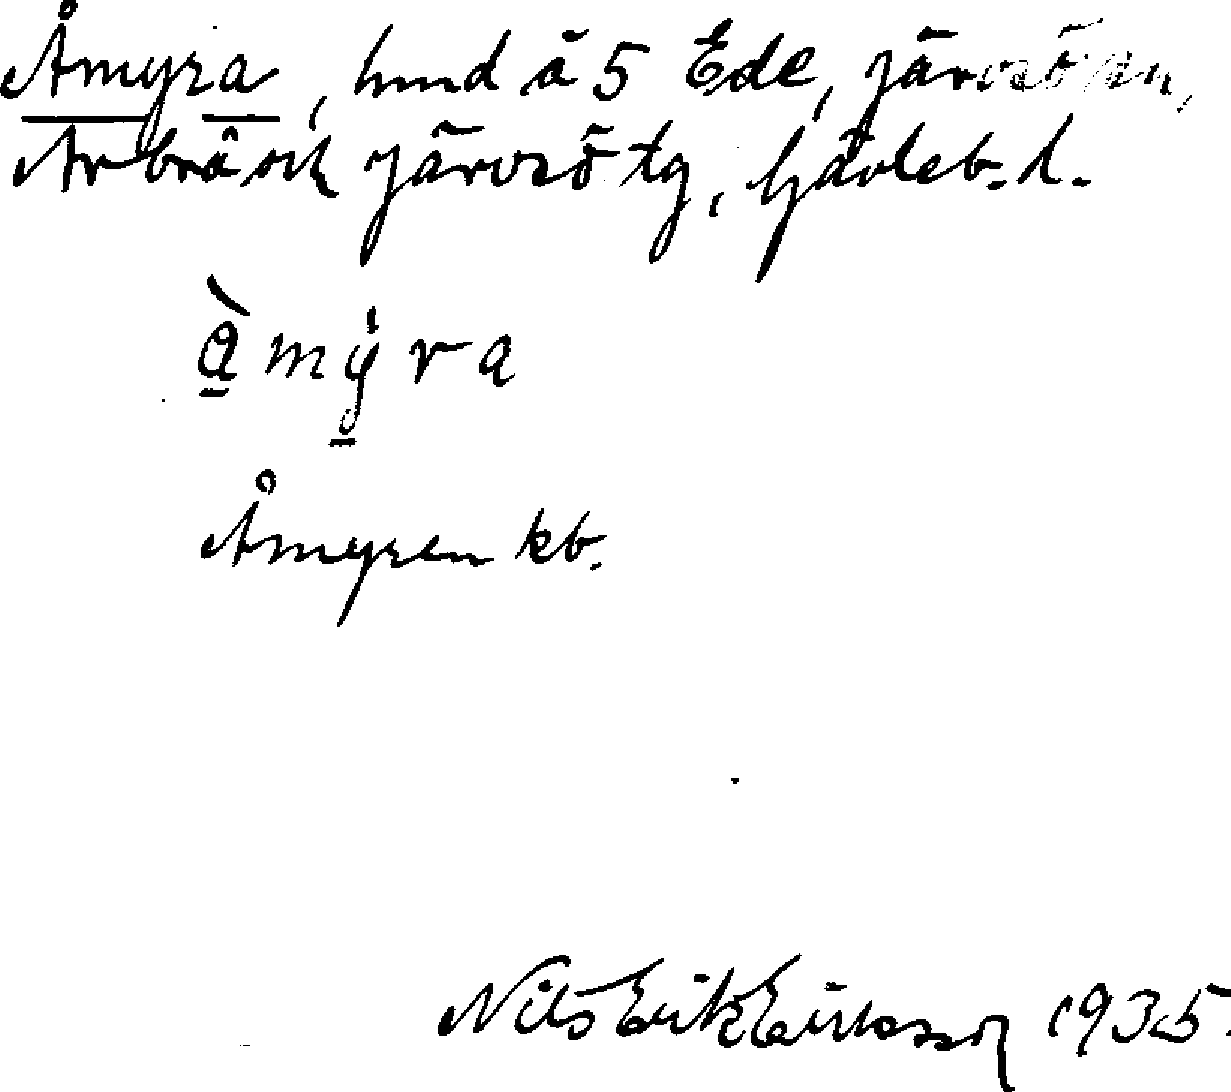 Åmyra, hmd å 5 Ede, Järvsö sn,
Arbrå och Järvsö tg, Gävleb. l.
å̀mýra
Åmyren kb.
Nils Erik Eriksson 1935.